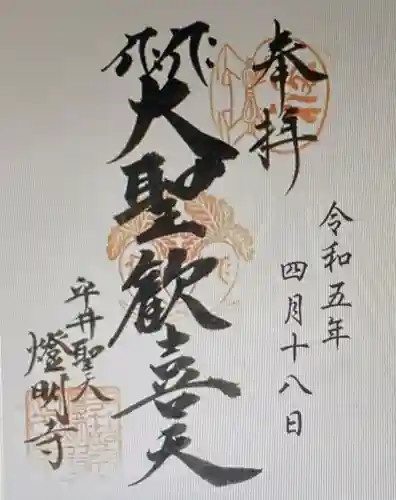 奉拝
令和五年
四月十八日
大聖歓喜天
平井聖天
燈明寺